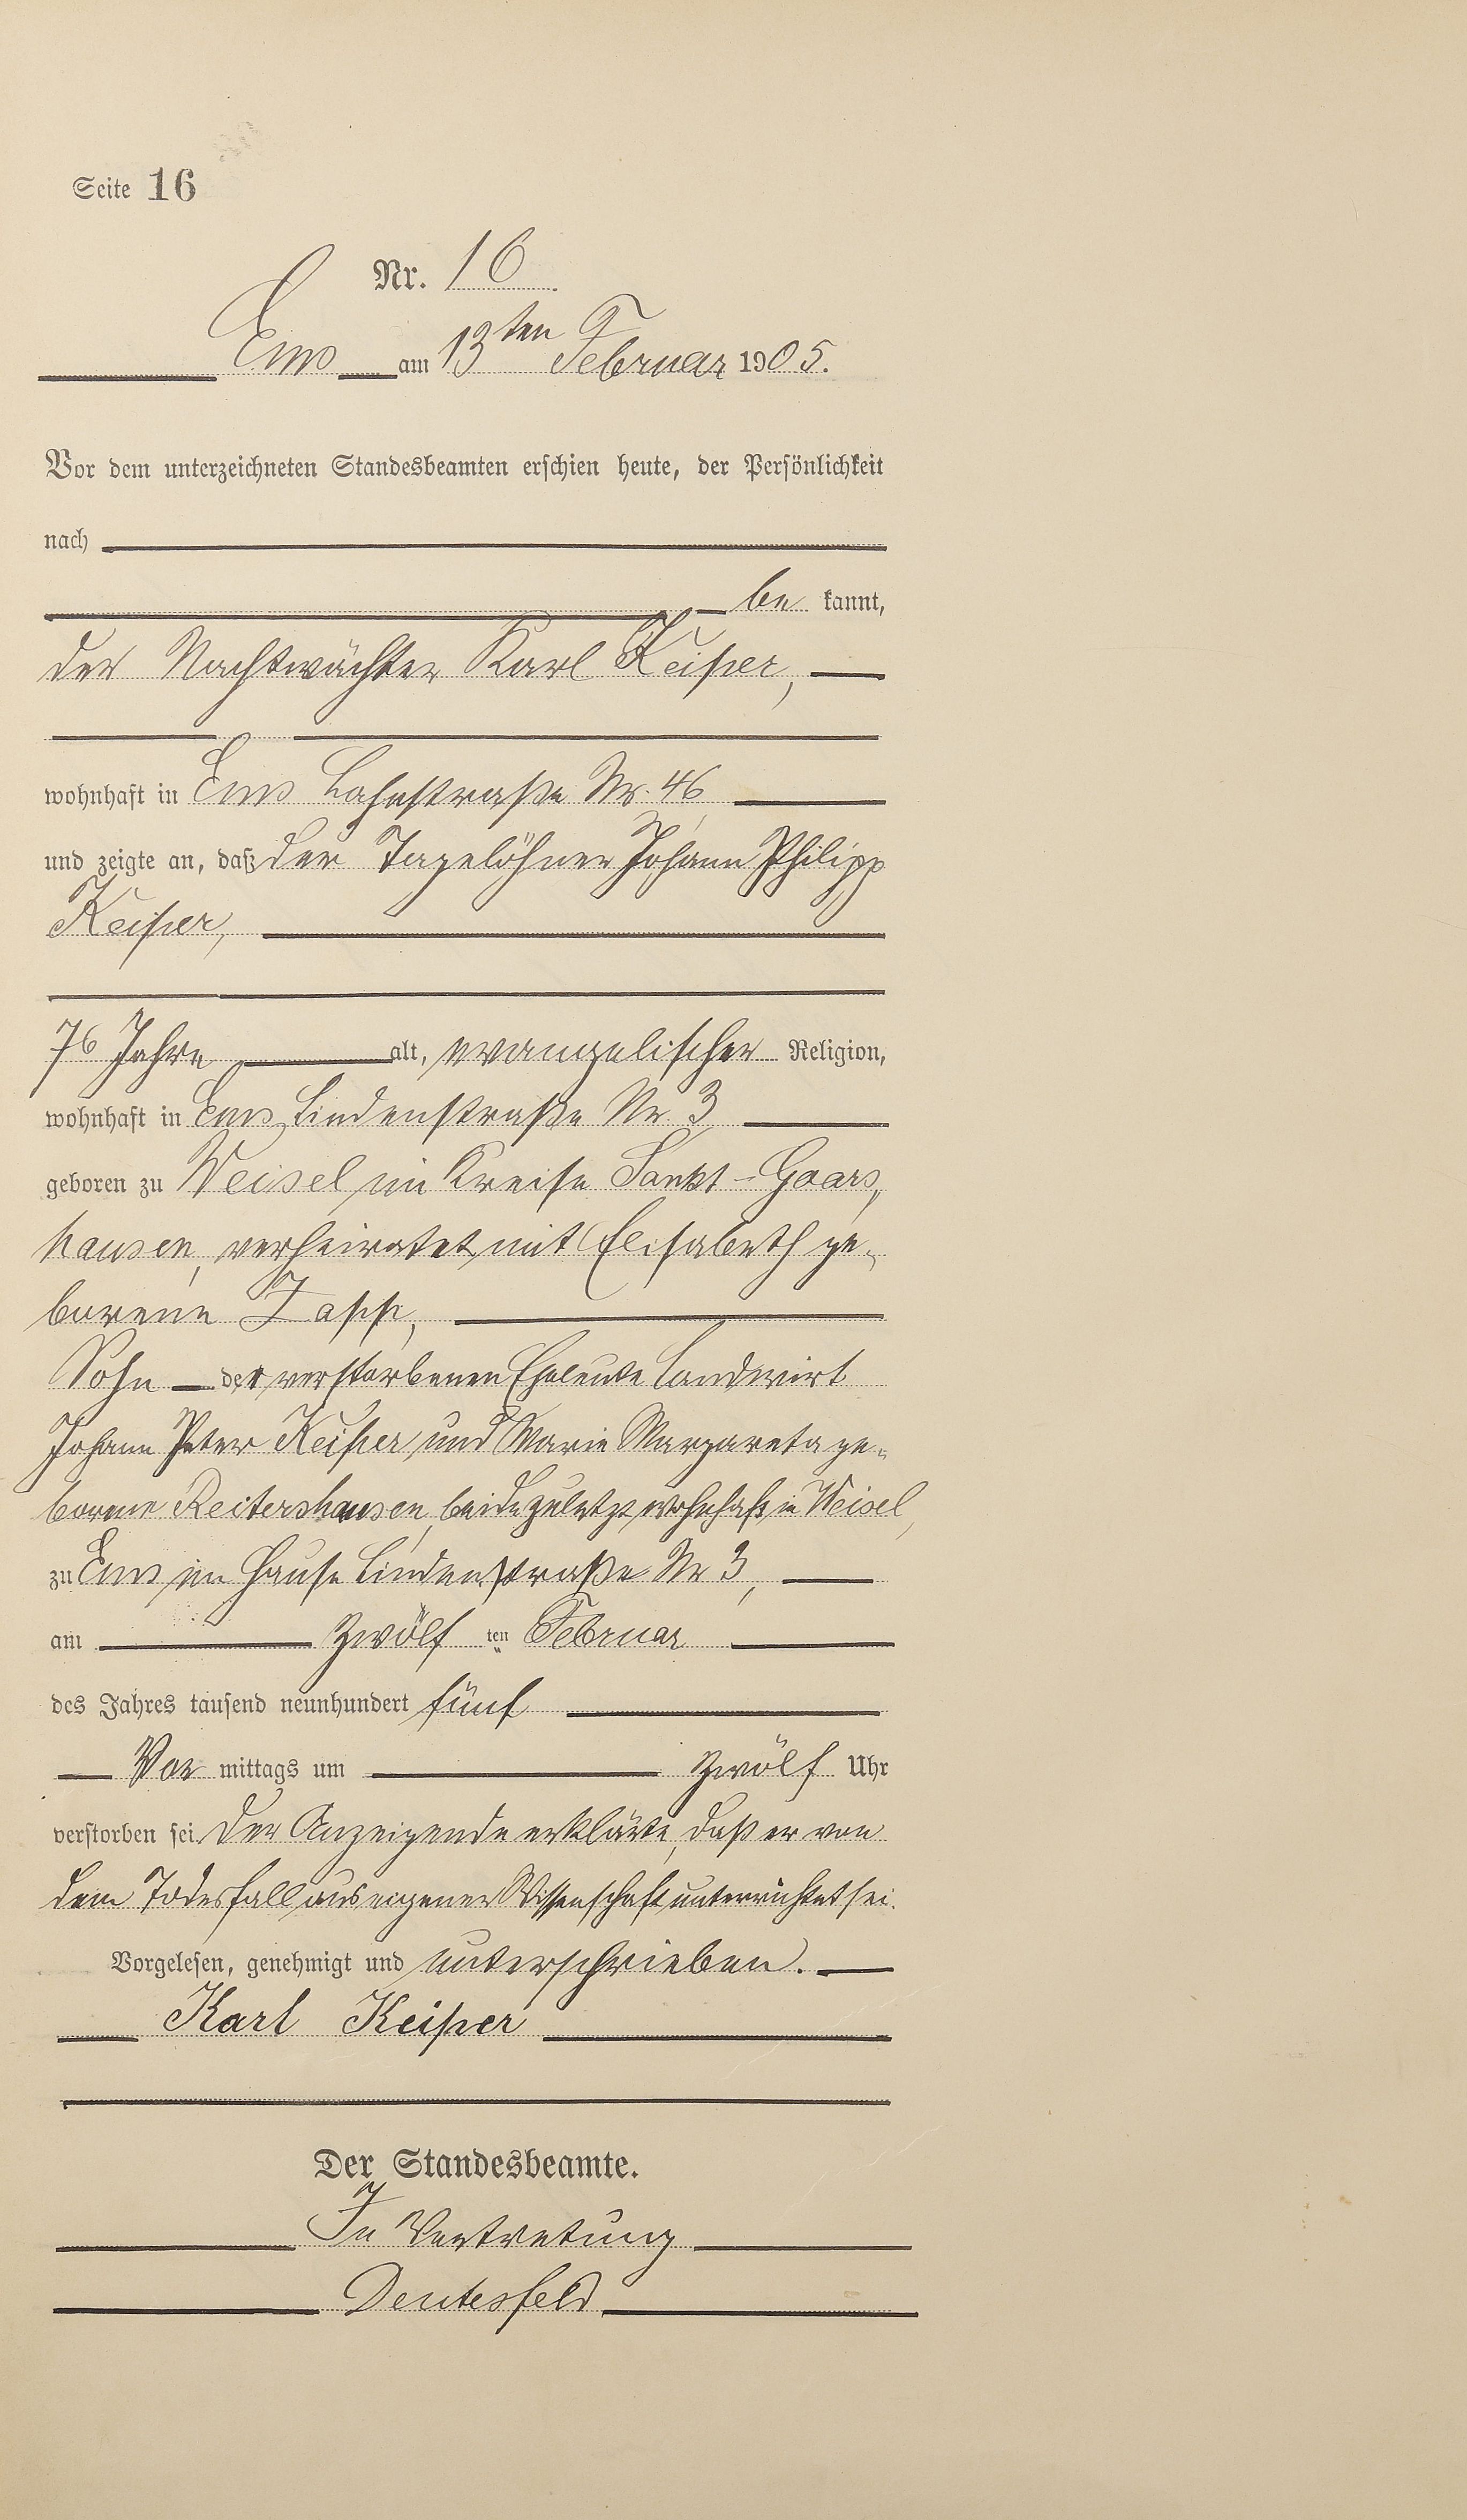 Seite 16
Nr. 16
Ems am 13ten Februar 1905.
Vor dem unterzeichneten Standesbeamten erschien heute, der Persönlichkeit
nach
be kannt,
der Nachtwächter Karl Keiper,
wohnhaft in Ems Lahnstraße Nr. 46,
und zeigte an, daß der Tagelöhner Johann Philipp
Keiper,
76 Jahre alt, evangelischer Religion,
wohnhaft in Ems, Lindenstraße Nr. 3,
geboren zu Weisel im Kreise Sankt-Goars,
hausen, verheiratet mit Elisabeth ge-
borene
Sohn der verstorbenen Eheleute Landwirt
Johann Peter Keiper und Marie Margareta ge-
borene Reitershausen, beide zuletzt wohnhaft in Weisel,
zu Ems im Hause Lindenstraße Nr 3,
am zwölf ten Februar
des Jahres tausend neunhundert fünf
Vor mittags um zwölf Uhr
verstorben sei. Der Anzeigende erklärte, daß er von
dem Todesfall aus eigener Wissenschaft unterrichtet sei.
Vorgelesen, genehmigt und unterschrieben.
Karl Keiper
Der Standesbeamte.
In Vertretung
Deutesfeld